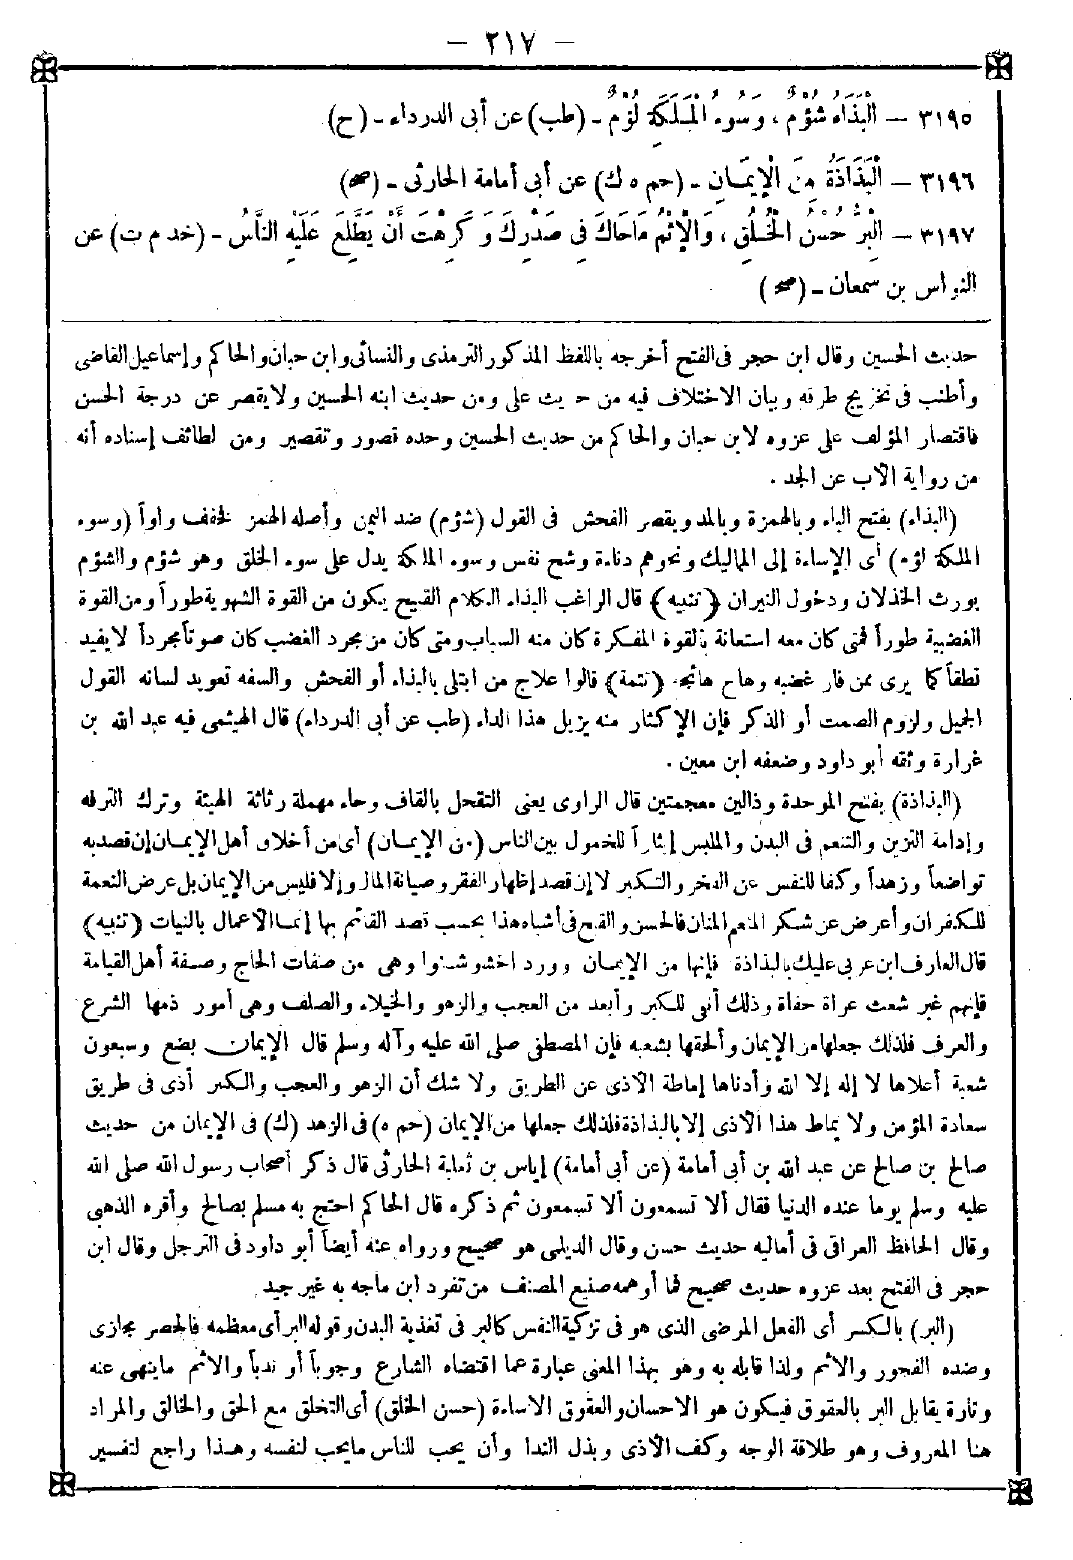 — ٢١٧ —
٣١٩٥ – الْبَذَاءُ شُؤْمٌ ، وَسُوءُ الْمَلَكَةِ لُؤْمٌ – (طب) عن أبى الدرداء – (ح)
٣١٩٦ – الْبَذَاذَةُ مِنَ الْإِيمَانِ – (حم ه ك) عن أبى أمامة الحارثى – (صح)
٣١٩٧ – الْبِرُّ حُسْنُ الْخُلُقِ ، وَالْإِثْمُ مَاحَاكَ فِى صَدْرِكَ وَكَرِهْتَ أَنْ يَطَّلِعَ عَلَيْهِ النَّاسُ – (خد م ت) عن
النواس بن سمعان – (صح)
حديث الحسين وقال ابن حجر فى الفتح أخرجه باللفظ المذكور الترمذى والنسائى وابن حبان والحاكم وإسماعيل القاضى
وأطنب فى تخريج طرقه وبيان الاختلاف فيه من حديث على ومن حديث ابنه الحسين ولا يقصر عن درجة الحسن
فاقتصار المؤلف على عزوه لابن حبان والحاكم من حديث الحسين وحده قصور وتقصير ومن لطائف إسناده أنه
من رواية الأب عن الجد .
(البذاء) بفتح الباء وبالهمزة وبالمد ويقصر الفحش فى القول (شؤم) ضد اليمن وأصله الهمز فخفف واواً (وسوء
الملكة لؤم) أى الإساءة إلى المماليك ونحوهم دناءة وشح نفس وسوء الملكة يدل على سوء الخلق وهو شؤم والشؤم
يورث الخذلان ودخول النيران (تنبيه) قال الراغب البذاء الكلام القبيح يكون من القوة الشهوية طوراً ومن القوة
الغضبية طوراً فمتى كان معه استعانة بالقوة المفكرة كان منه السباب ومتى كان من مجرد الغضب كان صوتاً مجرداً لا يفيد
نطقاً كما يرى ممن فار غضبه وهاج هائجه (تتمة) قالوا علاج من ابتلى بالبذاء أو الفحش والسفه تعويد لسانه القول
الجميل ولزوم الصمت أو الذكر فإن الإكثار منه يزيل هذا الداء (طب عن أبى الدرداء) قال الهيثمى فيه عبد الله بن
غرارة وثقه أبو داود وضعفه ابن معين .
(البذاذة) بفتح الموحدة وذالين معجمتين قال الراوى يعنى التقحل بالقاف وحاء مهملة رثاثة الهيئة وترك الترفه
وإدامة التزين والتنعم فى البدن والملبس إيثاراً للخمول بين الناس (من الإيمان) أى من أخلاق أهل الإيمان إن قصد به
تواضعاً وزهداً وكفا للنفس عن الفخر والتكبر لا إن قصد إظهار الفقر وصيانة المال وإلا فليس من الإيمان بل عرض النعمة
للكفران وأعرض عن شكر المنعم المنان فالحسن والقبح فى أشباه هذا بحسب قصد القائم بها إنما الأعمال بالنيات (تنبيه)
قال العارف ابن عربى عليك بالبذاذة فإنها من الإيمان وورد اخشوشنوا وهى من صفات الحاج وصفة أهل القيامة
فإنهم غبر شعث عراة حفاة وذلك أنفى للكبر وأبعد من العجب والزهو والخيلاء والصلف وهى أمور ذمها الشرع
والعرف فلذلك جعلها من الإيمان وألحقها بشعبه فإن المصطفى صلى الله عليه وآله وسلم قال الإيمان بضع وسبعون
شعبة أعلاها لا إله إلا الله وأدناها إماطة الأذى عن الطريق ولا شك أن الزهو والعجب والكبر أذى فى طريق
سعادة المؤمن ولا يماط هذا الأذى إلا بالبذاذة فلذلك جعلها من الإيمان (حم ه) فى الزهد (ك) فى الإيمان من حديث
صالح بن صالح عن عبد الله بن أبى أمامة (عن أبى أمامة) إياس بن ثعلبة الحارثى قال ذكر أصحاب رسول الله صلى الله
عليه وسلم يوما عنده الدنيا فقال ألا تسمعون ألا تسمعون ثم ذكره قال الحاكم احتج به مسلم بصالح وأقره الذهبى
وقال الحافظ العراقى فى أماليه حديث حسن وقال الديلمى هو صحيح ورواه عنه أيضاً أبو داود فى الترجل وقال ابن
حجر فى الفتح بعد عزوه حديث صحيح فما أوهمه صنيع المصنف من تفرد ابن ماجه به غير جيد
(البر) بالكسر أى الفعل المرضى الذى هو فى تزكية النفس كالبر فى تغذية البدن وقوله البر أى معظمه فالحصر مجازى
وضده الفجور والاثم ولذا قابله به وهو بهذا المعنى عبارة عما اقتضاه الشارع وجوباً أو ندباً والاثم ماينهى عنه
وتارة يقابل البر بالعقوق فيكون هو الاحسان والعقوق الاساءة (حسن الخلق) أى التخلق مع الحق والخالق والمراد
هنا المعروف وهو طلاقة الوجه وكف الأذى وبذل الندا وأن يحب للناس مايحب لنفسه وهذا راجع لتفسير